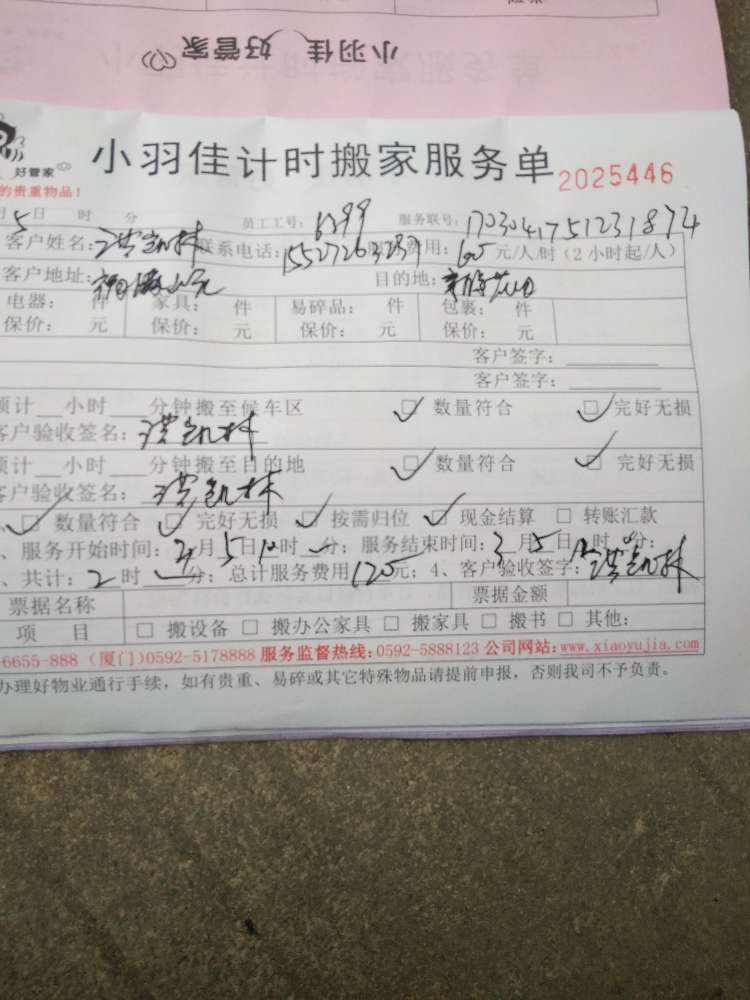 小羽佳 好管家
好管家
小羽佳计时搬家服务单 2025446
的贵重物品！
月5日 时 分 员工工号：6299 服务联号：1703041751231874
客户姓名： 联系电话： 费用：60元/人/时（2小时起/人）
客户地址： 目的地：
电器： 件 家具： 件 易碎品： 件 包裹： 件
保价： 元 保价： 元 保价： 元 保价： 元
客户签字：
客户签字：
预计__小时___分钟搬至候车区 ☑ 数量符合 ☑ 完好无损
客户验收签名：
预计__小时___分钟搬至目的地 ☑ 数量符合 ☑ 完好无损
客户验收签名：
☑ 数量符合 ☑ 完好无损 ☑ 按需归位 ☑ 现金结算 □ 转账汇款
、服务开始时间： 月5日10时 分；服务结束时间：3月5日 时 分；
、共计：2时 分；总计服务费用120元；4、客户验收签字：
票据名称 票据金额
项 目 □ 搬设备 □ 搬办公家具 □ 搬家具 □ 搬书 □ 其他：
6655-888（厦门）0592-5178888 服务监督热线：0592-5888123 公司网站：www.xiaoyujia.com
办理好物业通行手续，如有贵重、易碎或其它特殊物品请提前申报，否则我司不予负责。